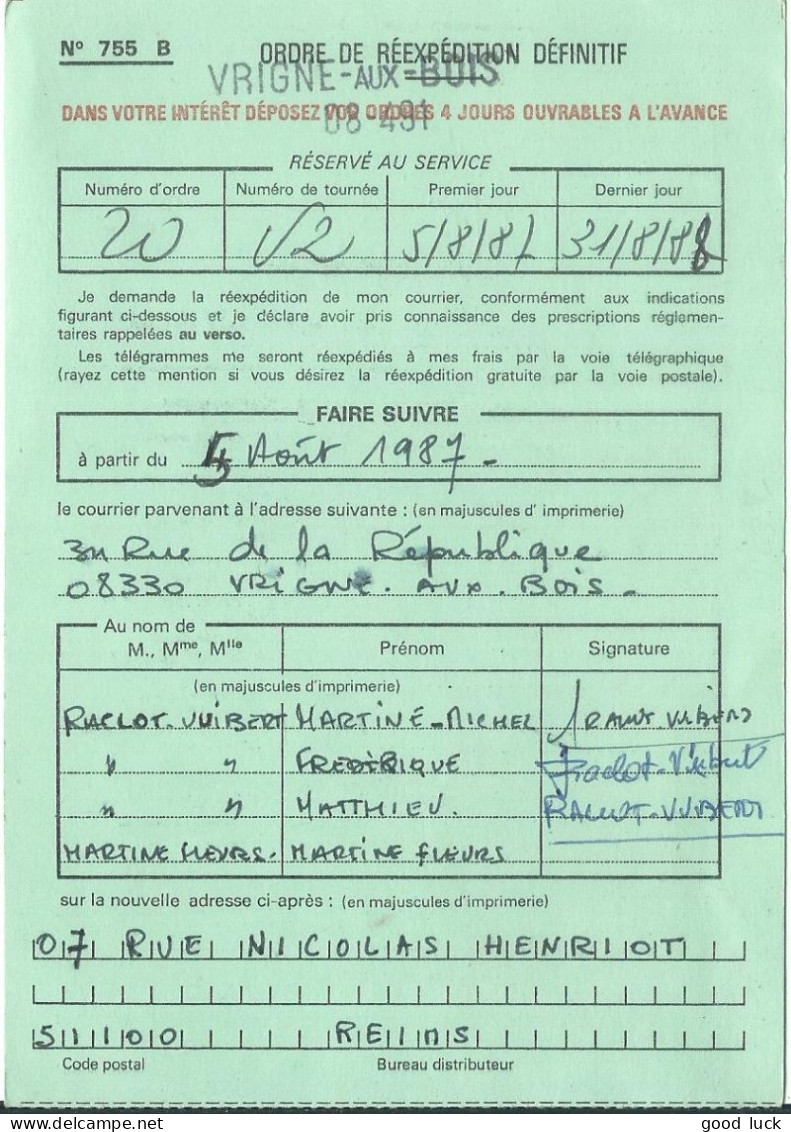 N° 755 B
ORDRE DE RÉEXPÉDITION DÉFINITIF
VRIGNE-AUX-BOIS
DANS VOTRE INTÉRÊT DÉPOSEZ VOS ORDRES 4 JOURS OUVRABLES A L'AVANCE
08 491
RÉSERVÉ AU SERVICE
Numéro d'ordre Numéro de tournée Premier jour Dernier jour
20 V2 5/8/87 31/8/88
Je demande la réexpédition de mon courrier, conformément aux indications
figurant ci-dessous et je déclare avoir pris connaissance des prescriptions réglemen-
taires rappelées au verso.
Les télégrammes me seront réexpédiés à mes frais par la voie télégraphique
(rayez cette mention si vous désirez la réexpédition gratuite par la voie postale).
FAIRE SUIVRE
à partir du 5 Août 1987 -
le courrier parvenant à l'adresse suivante : (en majuscules d' imprimerie)
Rue de la République
08330 VRIGNE. AUX. BOIS -
Au nom de
M., Mme, Mlle Prénom Signature
(en majuscules d'imprimerie)
RACLOT-VUIBERT MARTINE-MICHEL
" " FREDERIQUE Raclot-Vuibert
" " MATTHIEU. RACLOT-VUIBERT
MARTINE FLEURS. MARTINE FLEURS
sur la nouvelle adresse ci-après : (en majuscules d'imprimerie)
07 RUE NICOLAS HENRIOT
51100 REIMS
Code postal Bureau distributeur
good luck